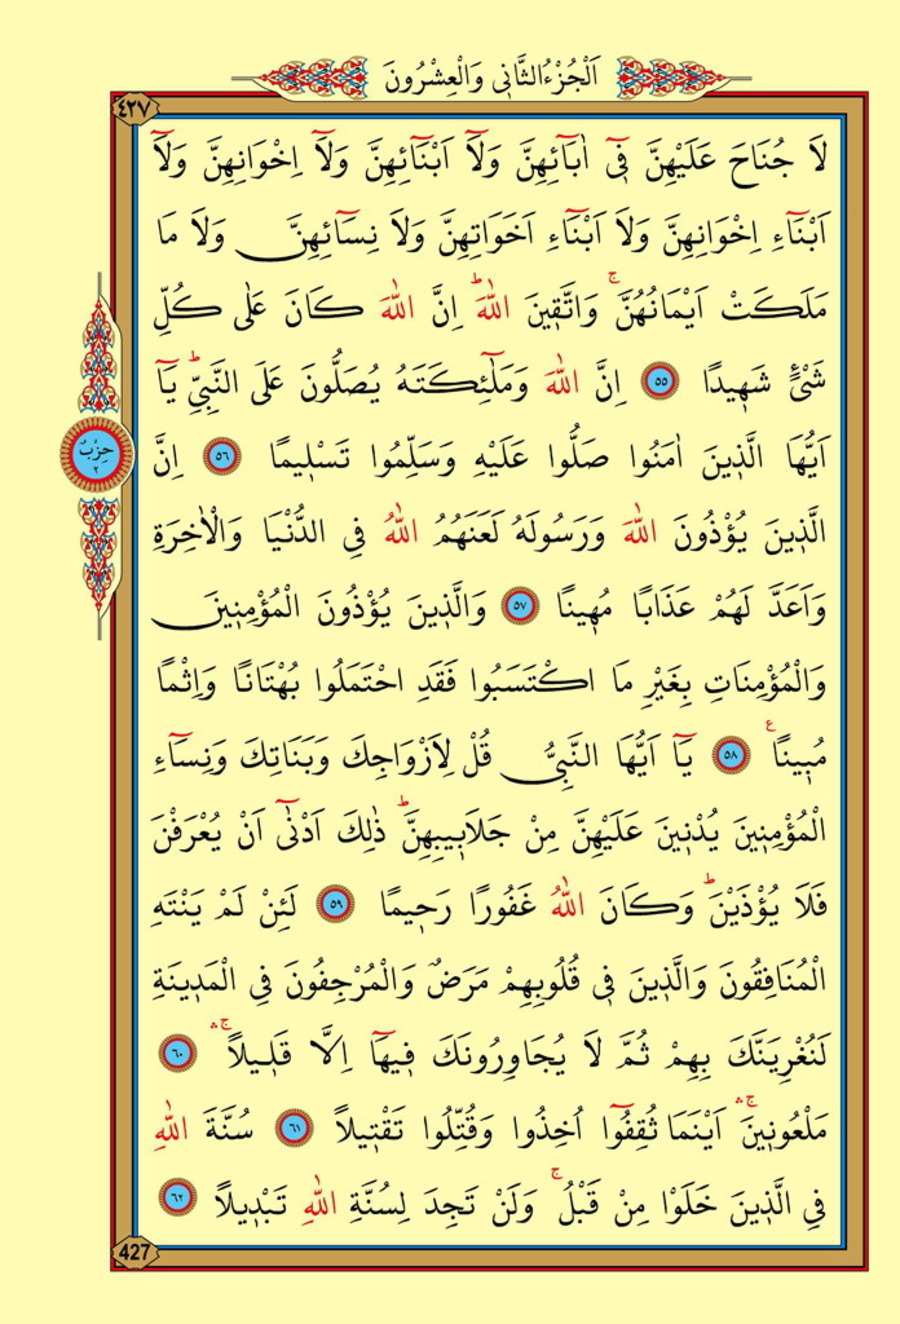 اَلْجُزْءُ الثَّانِى وَالْعِشْرُونَ
٤٢٧
لَا جُنَاحَ عَلَيْهِنَّ فٓى اٰبَٓائِهِنَّ وَلَٓا اَبْنَٓائِهِنَّ وَلَٓا اِخْوَانِهِنَّ وَلَٓا
اَبْنَٓاءِ اِخْوَانِهِنَّ وَلَٓا اَبْنَٓاءِ اَخَوَاتِهِنَّ وَلَا نِسَٓائِهِنَّ وَلَا مَا
مَلَكَتْ اَيْمَانُهُنَّۚ وَاتَّقٖينَ اللّٰهَۜ اِنَّ اللّٰهَ كَانَ عَلٰى كُلِّ
شَیْءٍ شَهٖيدًا ٥٥ اِنَّ اللّٰهَ وَمَلٰٓئِكَتَهُ يُصَلُّونَ عَلَى النَّبِىِّؕ يَٓا
اَيُّهَا الَّذٖينَ اٰمَنُوا صَلُّوا عَلَيْهِ وَسَلِّمُوا تَسْلٖيمًا ٥٦ اِنَّ
الَّذٖينَ يُؤْذُونَ اللّٰهَ وَرَسُولَهُ لَعَنَهُمُ اللّٰهُ فِى الدُّنْيَا وَالْاٰخِرَةِ
وَاَعَدَّ لَهُمْ عَذَابًا مُهٖينًا ٥٧ وَالَّذٖينَ يُؤْذُونَ الْمُؤْمِنٖينَ
وَالْمُؤْمِنَاتِ بِغَيْرِ مَا اكْتَسَبُوا فَقَدِ احْتَمَلُوا بُهْتَانًا وَاِثْمًا
مُبٖينًا ع ٥٨ يَٓا اَيُّهَا النَّبِىُّ قُلْ لِاَزْوَاجِكَ وَبَنَاتِكَ وَنِسَٓاءِ
الْمُؤْمِنٖينَ يُدْنٖينَ عَلَيْهِنَّ مِنْ جَلَابٖيبِهِنَّؕ ذٰلِكَ اَدْنٰٓى اَنْ يُعْرَفْنَ
فَلَا يُؤْذَيْنَؕ وَكَانَ اللّٰهُ غَفُورًا رَحٖيمًا ٥٩ لَئِنْ لَمْ يَنْتَهِ
الْمُنَافِقُونَ وَالَّذٖينَ فٖى قُلُوبِهِمْ مَرَضٌ وَالْمُرْجِفُونَ فِى الْمَدٖينَةِ
لَنُغْرِيَنَّكَ بِهِمْ ثُمَّ لَا يُجَاوِرُونَكَ فٖيهَٓا اِلَّا قَلٖيلًاۛۚ ٦٠
مَلْعُونٖينَۛۚ اَيْنَمَا ثُقِفُٓوا اُخِذُوا وَقُتِّلُوا تَقْتٖيلًا ٦١ سُنَّةَ اللّٰهِ
فِى الَّذٖينَ خَلَوْا مِنْ قَبْلُۚ وَلَنْ تَجِدَ لِسُنَّةِ اللّٰهِ تَبْدٖيلًا ٦٢
حِزْبٌ
٢
427